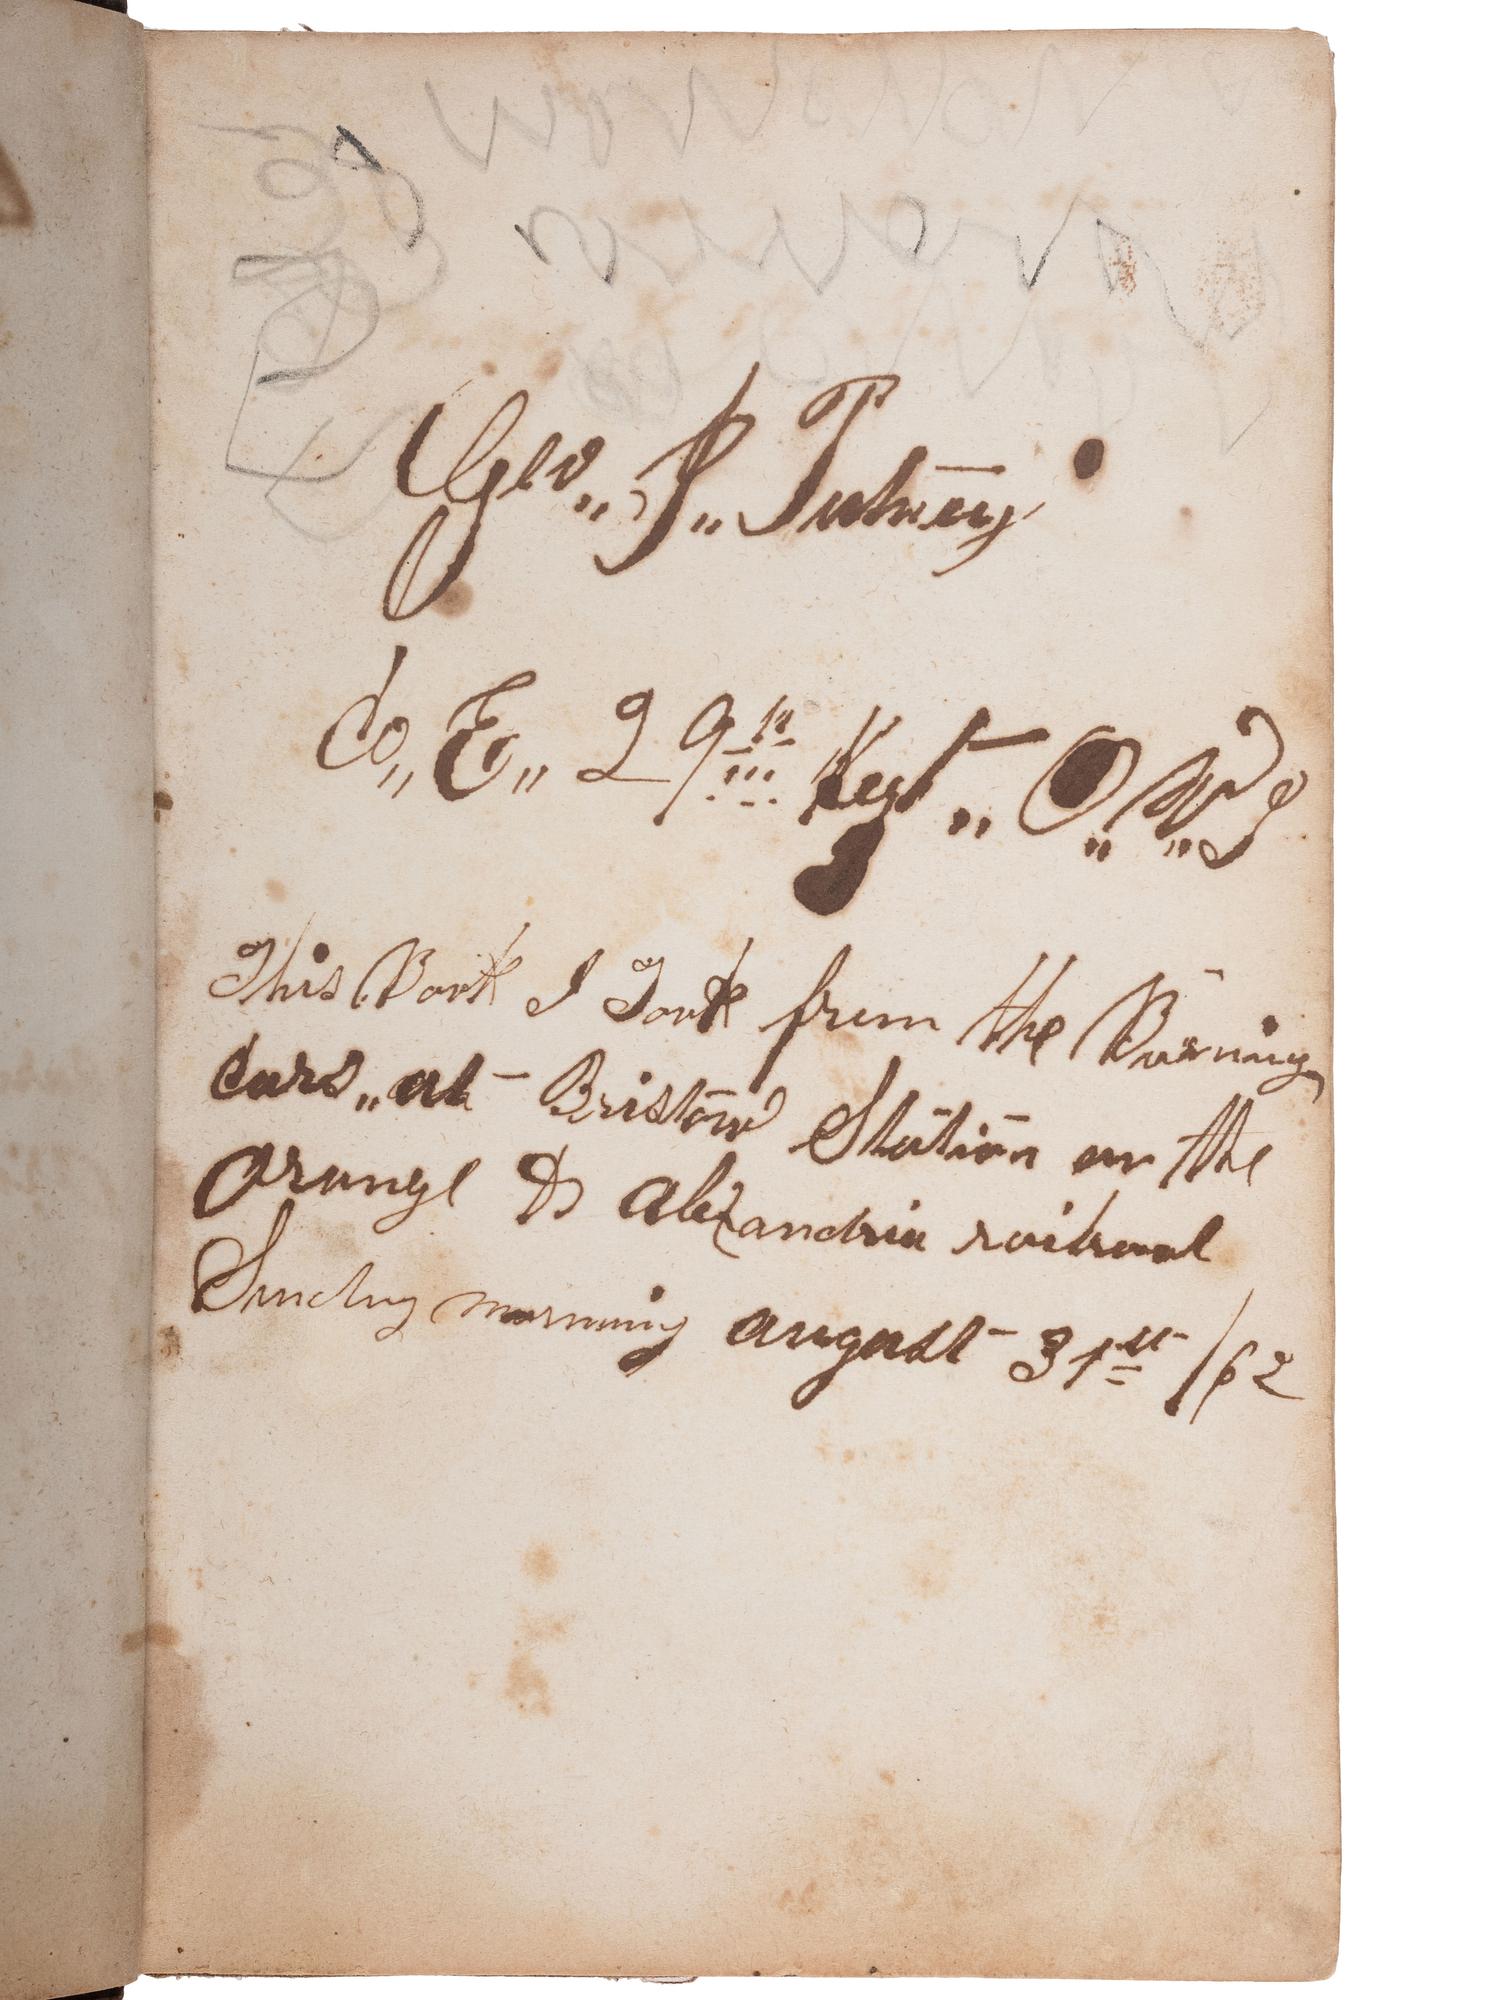 Geo,, J,, Putney
Co,, E,, 29th Regt,, O,, V,, I
This Book I Took from the Burning
Cars,, at Bristow Station on the
Orange & Alexandria railroad
Sunday morning august 31st /62